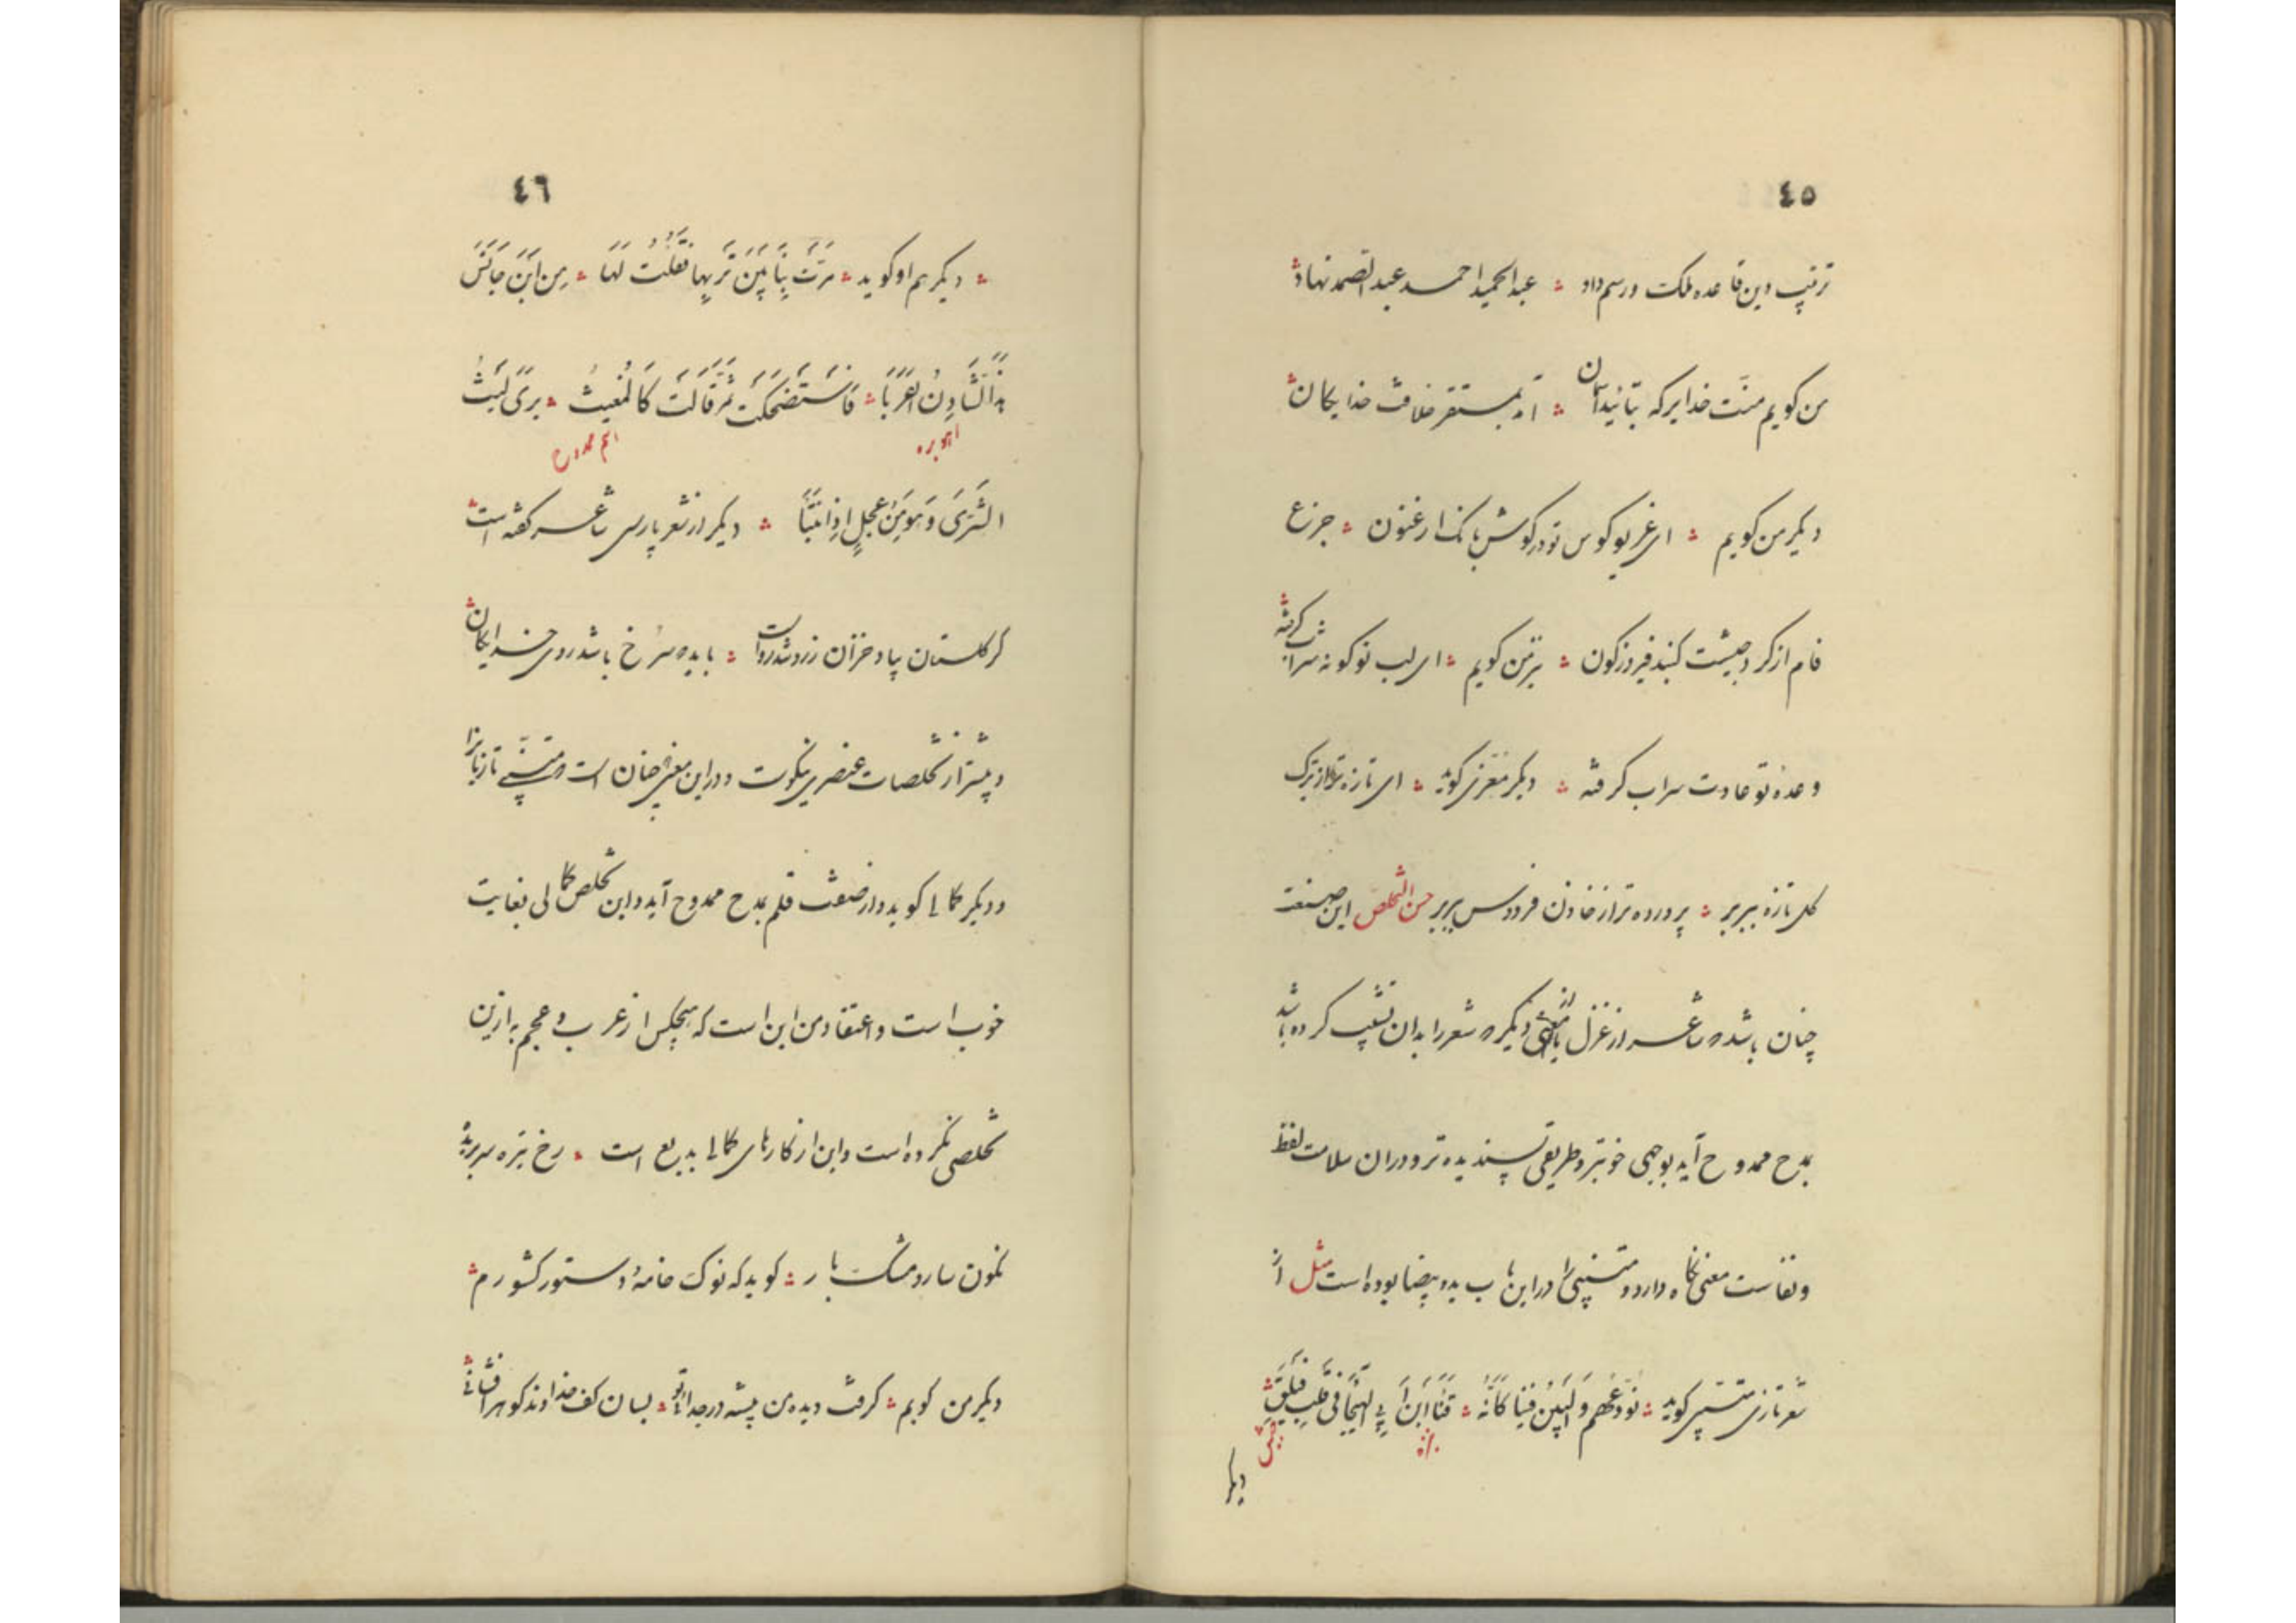 ٤٥
ترتیب دین قاعده ملک و رسم داد ؞ عبدالحمید احمد عبدالصمد نهاد
من گویم منت خدایرکه بتأئید آسمان ؞ آمد بمستقر خلافت خدایگان
دیگر من گویم ؞ ای غریو کوس تو در گوش بانک ارغنون ؞ جزع
فام از گرد جیشت گنبد فیروزگون ؞ نیز من گویم ؞ ای لب تو گونه شراب گرفته
وعدهٔ تو عادت سراب گرفته ؞ دیگر معزّی گوید ؞ ای تازه تر از برک
گل تازه ببر بر ؞ پرورده ترا خازن فردوس ببر بر حسن التخلص این صنعت
چنان باشد که شاعر از غزل یا از معنی دیگر که شعر را بدان تشبیب کرده باشد
بمدح ممدوح آید بوجهی خوبتر و طریقی پسندیده تر و در آن سلامت لفظ
و نفاست معنی نگاه دارد و متنبّی را در این باب ید بیضا بوده است مثل از
شعر تازی متنبّی گوید ؞ نُوَدِّعُهُم وَالبَینُ فینا کَاَنَّهُ ؞ قَنَا ابنِ اَبِی الهَیجَا فی قَلبِ فَیلَقِ
نیزه جیش
دیگر
٤٦
؞ دیگر هم او گوید ؞ مَرَّت بِنَا بَینَ تَربَیهَا فَقُلتُ لَهَا ؞ مِن اَینَ جَانَسَ
هَذَا الشَّادِنُ العَرَبَا ؞ فَاستَضحَکَت ثُمَّ قَالَت کَالمُغیثِ ؞ یُرَی لَیثَ
آهو بره اسم ممدوح
الشَّرَی وَهوَ مِن عِجلٍ اِذَا انتَسَبَا ؞ دیگر از شعر پارسی شاعر گفته است
گر گلستان بباد خزان زرد شد رواست ؞ باید که سرخ باشد روی خدایگان
و بیشتر از تخلصات عنصری نیکوست و در این معنی چنان است که متنبّی تازیانرا
و دیگر کمالی گوید و از صفت قلم بمدح ممدوح آید و این تخلص کمالی بغایت
خوب است و اعتقاد من این است که هیچکس از عرب و عجم به ازین
تخلصی نکرده است و این از کارهای کمالی بدیع است ؞ رخ تیره سر بریده
نگون سار و مشک بار ؞ گوید که نوک خامهٔ دستور کشورم
دیگر من گویم ؞ گرفت دیدهٔ من پیشه در جدائی تو ؞ بسان کف خداوند گوهر افشانی